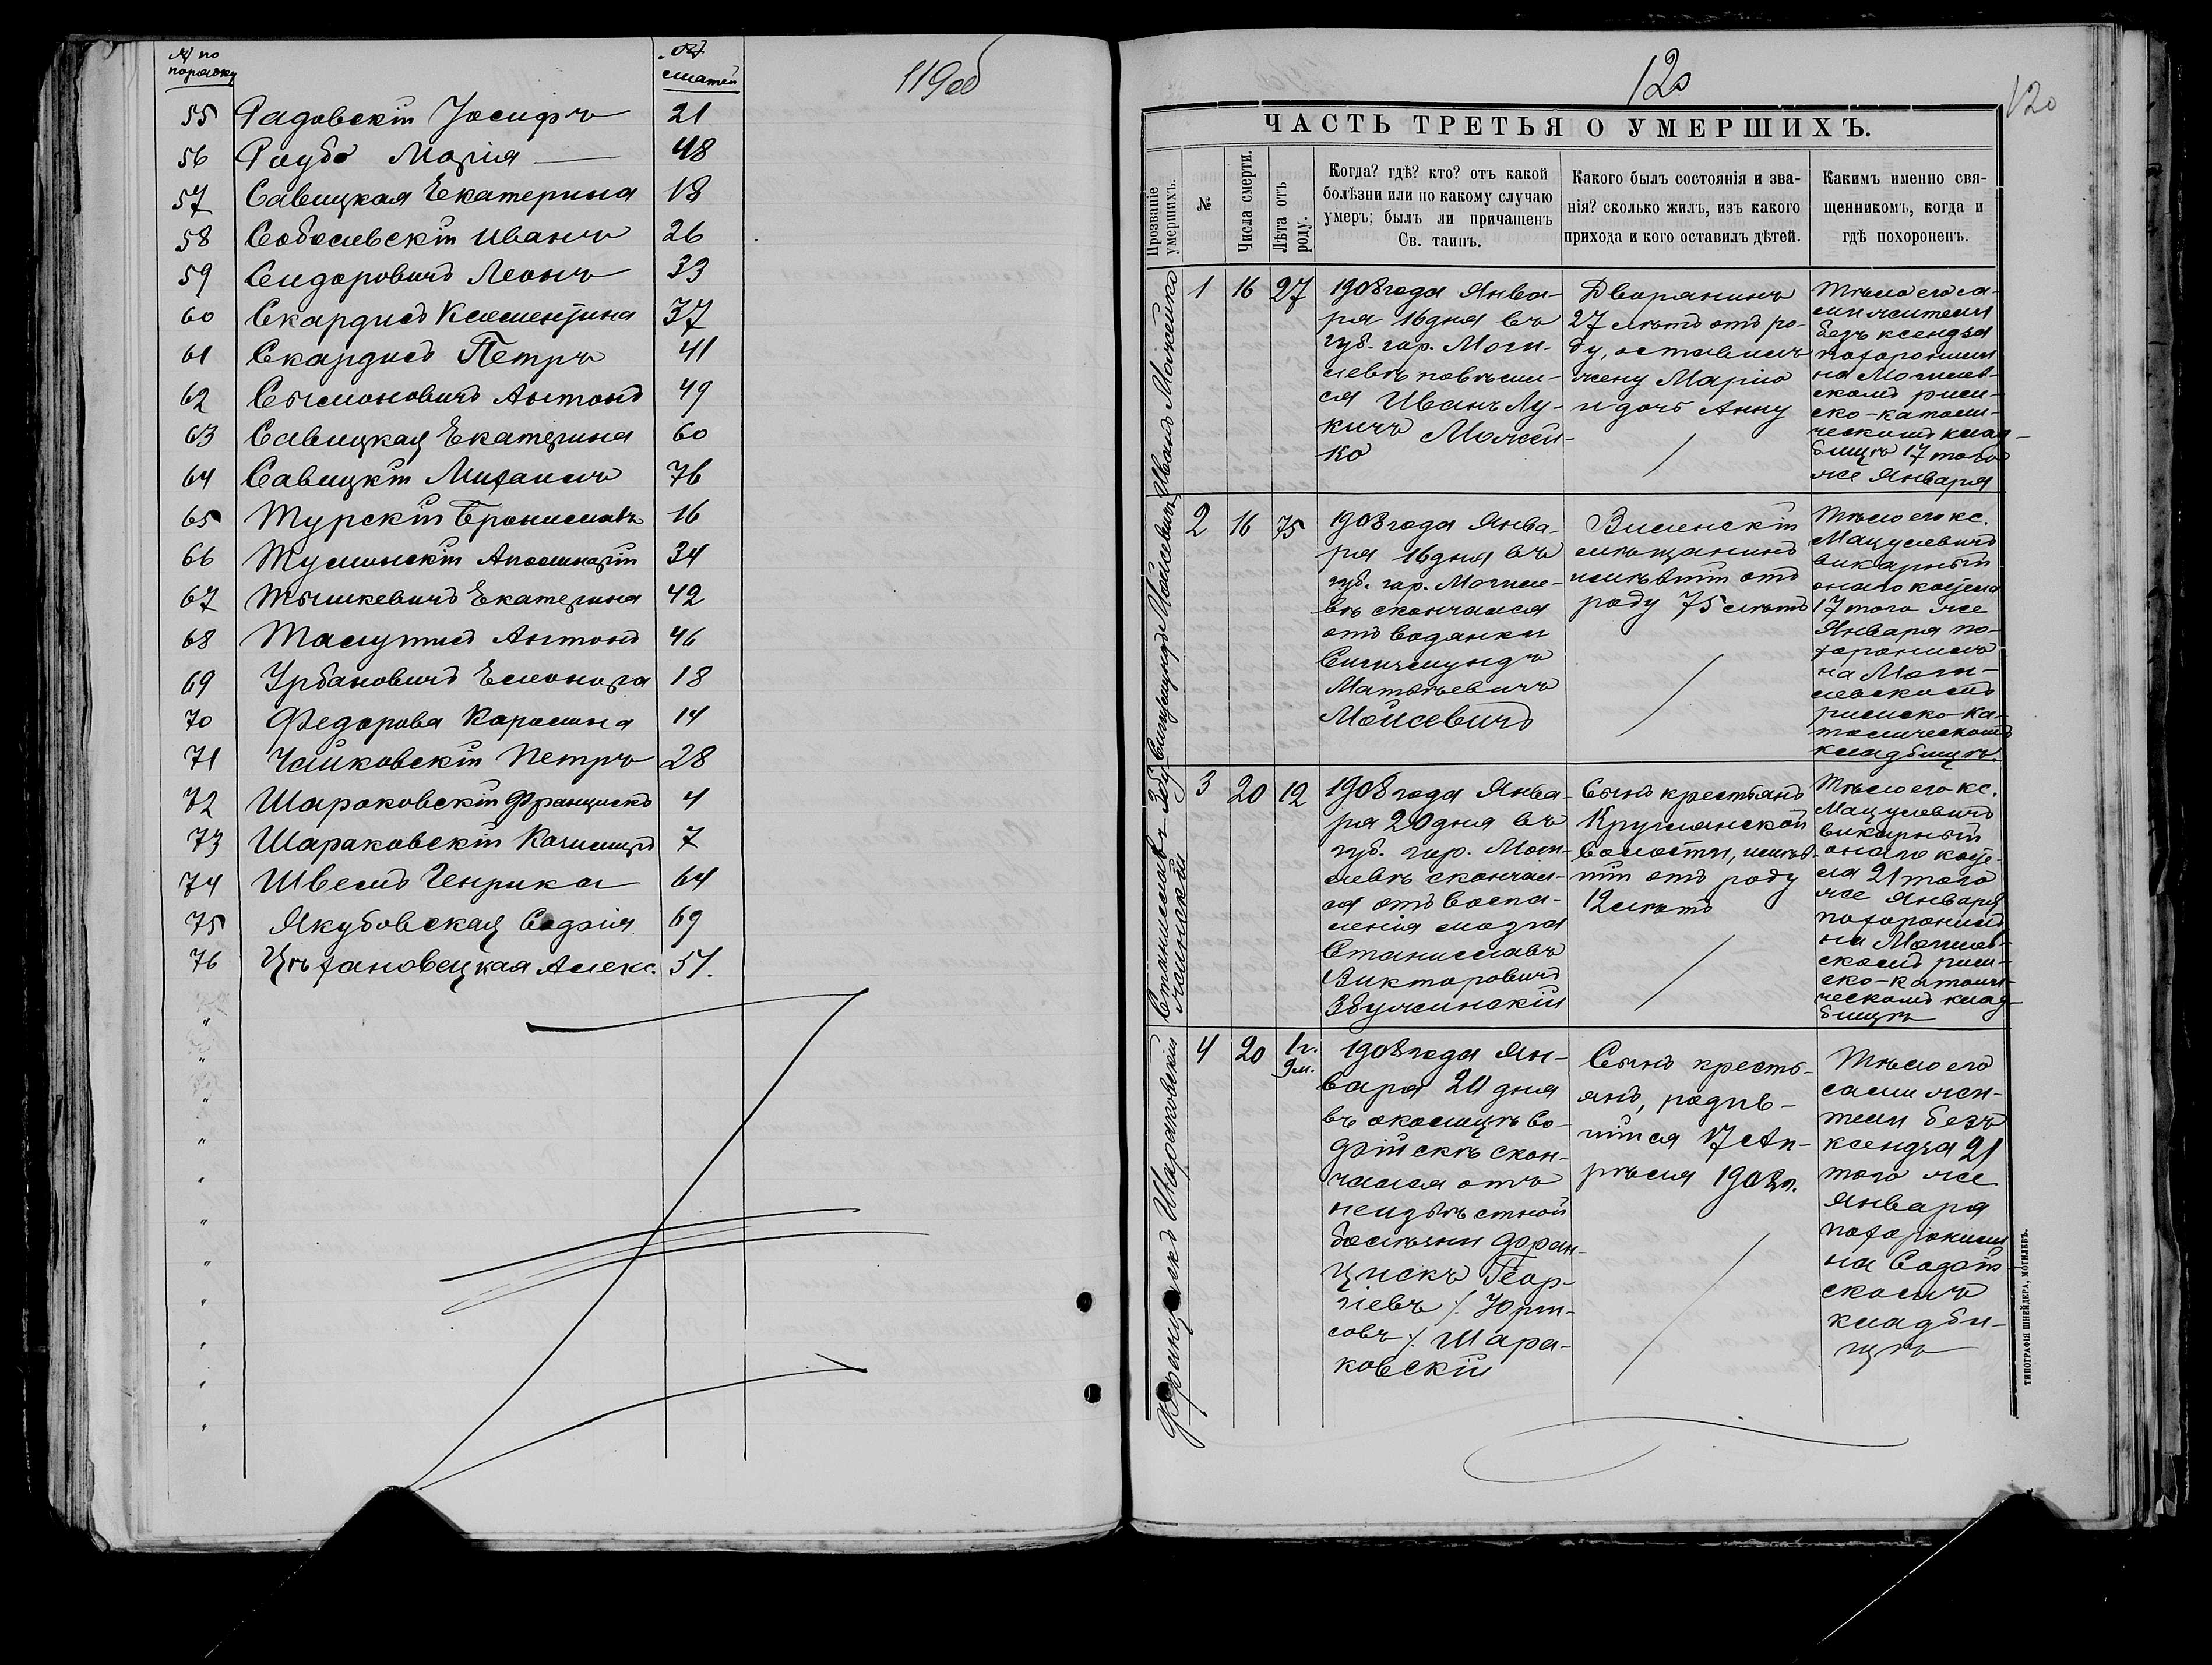 № по
порядку
№
статей
119об
55 Радовскій Іосифъ 21
56 Раубо Марія 48
57 Савицкая Екатерина 18
58 Соболевскій Иванъ 26
59 Сидоровичъ Леонъ 33
60 Скардисъ Клементина 37
61 Скардисъ Петръ 41
62 Сымоновичъ Антонъ 49
63 Савицкая Екатерина 60
64 Савицкій Михаилъ 76
65 Турскій Брониславъ 16
66 Тумонскій Аполинарій 34
67 Тышкевичъ Екатерина 42
68 Талутисъ Антонъ 46
69 Урбановичъ Елеонора 18
70 Федорова Каролина 14
71 Чайковскій Петръ 28
72 Шароковскій Францискъ 4
73 Шараковскій Казимиръ 7
74 Швелисъ Генрика 64
75 Якубовская Софія 69
76 Цѣхановецкая Алекс. 51.
120
120
ЧАСТЬ ТРЕТЬЯ О УМЕРШИХЪ.
Прозваніе
умершихъ.
№
Числа смерти.
Лѣта отъ
роду.
Когда? гдѣ? кто? отъ какой
болѣзни или по какому случаю
умеръ; былъ ли причащенъ
Св. таинъ.
Какого былъ состоянія и зва-
нія? сколько жилъ, изъ какого
прихода и кого оставилъ дѣтей.
Какимъ именно свя-
щенникомъ, когда и
гдѣ похороненъ.
Иванъ Можейко
1 16 27
1908 года Янва-
ря 16 дня въ
губ. гор. Моги-
левѣ повѣсил-
ся Иванъ Лу-
кичъ Можей-
ко
Дворянинъ
27 лѣтъ отъ ро-
ду, оставилъ
жену Марію
и дочь Анну
Тѣло его са-
ми жители
безъ ксендза
похоронили
на Могилев-
скомъ рим-
ско-католи-
ческомъ клад-
бищѣ 17 того
же Января
Сигизмундъ Мойсевичъ
2 16 75
1908 года Янва-
ря 16 дня въ
губ. гор. Могиле-
вѣ скончался
отъ водянки
Сигизмундъ
Матвѣевичъ
Мойсевичъ
Виленскій
мѣщанинъ
имѣвшій отъ
роду 75 лѣтъ
Тѣло его кс.
Мацулевичъ
викарный
онаго костела
17 того же
Января по-
хоронилъ
на Моги-
левскомъ
римско-ка-
толическомъ
кладбищѣ.
Станиславъ Збу-
жинскій
3 20 12
1908 года Янва-
ря 20 дня въ
губ. гор. Моги-
левѣ скончал-
ся отъ воспа-
ленія мозга
Станиславъ
Викторовичъ
Збужинскій
Сынъ крестьянъ
Круглянской
волости, имѣв-
шій отъ роду
12 лѣтъ
Тѣло его кс.
Мацулевичъ
викарный
онаго косте-
ла 21 того
же Января
похоронилъ
на Могилев-
скомъ рим-
ско-католи-
ческомъ клад-
бищѣ
Францискъ Шараковскій
4 20 1 г.
9 м.
1908 года Ян-
варя 20 дня
въ околицѣ Со-
фійскѣ скон-
чался отъ
неизвѣстной
болѣзни Фран-
цискъ Геор-
гіевъ /. Юрій-
совъ ./ Шара-
ковскій
Сынъ кресть-
янъ, родив-
шійся 17 Ап-
рѣля 190 г.
Тѣло его
сами жи-
тели безъ
ксендза 21
того же
Января
похоронили
на Софій-
скомъ
кладби-
щѣ
ТИПОГРАФІЯ ШНЕЙДЕРА, МОГИЛЕВЪ.